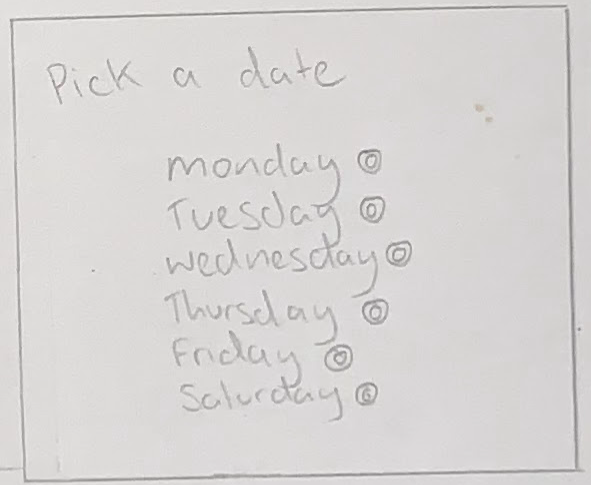 Pick a date
monday
Tuesday
wednesday
Thursday
Friday
Saturday